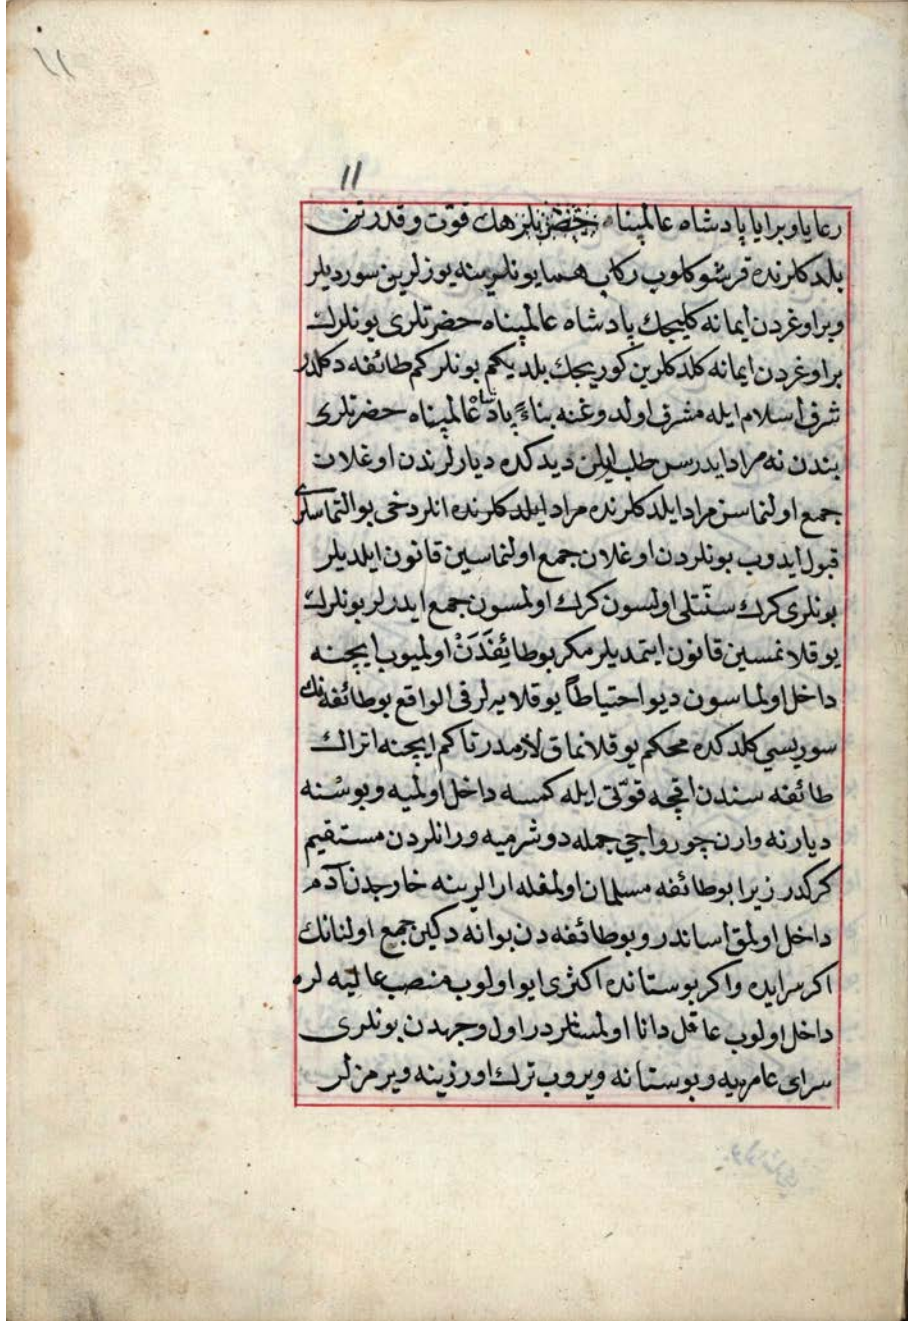 11
11
رعايا وبرايا پادشاه عالمپناه حضرتلرينك قوّت و قدرتن
بلدكلرنده قرشو كلوب ركاب همايونلرينه يوزلرين سورديلر
وبر اوغردن ايمانه كليجك پادشاه عالمپناه حضرتلرى بونلرك
بر اوغردن ايمانه كلدكلرين كوريجك بلديكم بونلر كم طائفه دكلدر
شرف اسلام ايله مشرف اولدوغنه بناءً پادشاه عالمپناه حضرتلرى
بندن نه مراد ايدرسز طلب ايلن ديدكده ديارلرندن اوغلان
جمع اولنماسن مراد ايلدكلرنده مراد ايلدكلرنده انلر دخى بو التماسلرى
قبول ايدوب بونلردن اوغلان جمع اولنماسين قانون ايلديلر
بونلرى كرك سنّتلى اولسون كرك اولمسون جمع ايدرلر بونلرك
يوقلانمسين قانون ايتمديلر مكر بو طايفَدَنْ اولميوب ايچنه
داخل اولماسون ديو احتياطاً يوقلايه لر فى الواقع بو طائفه نك
سوريسي كلدكده محكم يوقلانماق لازمدر تاكم ايچنه اتراك
طائفه سندن اقچه قوّتى ايله كمسه داخل اولميه و بوسنه
ديارنه وارن چورواجي جمله دوشرميه ورانلردن مستقيم
كركدر زيرا بو طائفه مسلمان اولمغله ارالرينه خارجدن آدم
داخل اولمق اساندر و بو طائفه دن بو انه دكين جمع اولنانك
اكر سرايده واكر بوستانده اكثرى ايو اولوب منصب عاليه لره
داخل اولوب عاقل دانا اولمشلردر اول وجهدن بونلرى
سراى عامره يه و بوستانه ويروب ترك اوزرينه ويرمزلر